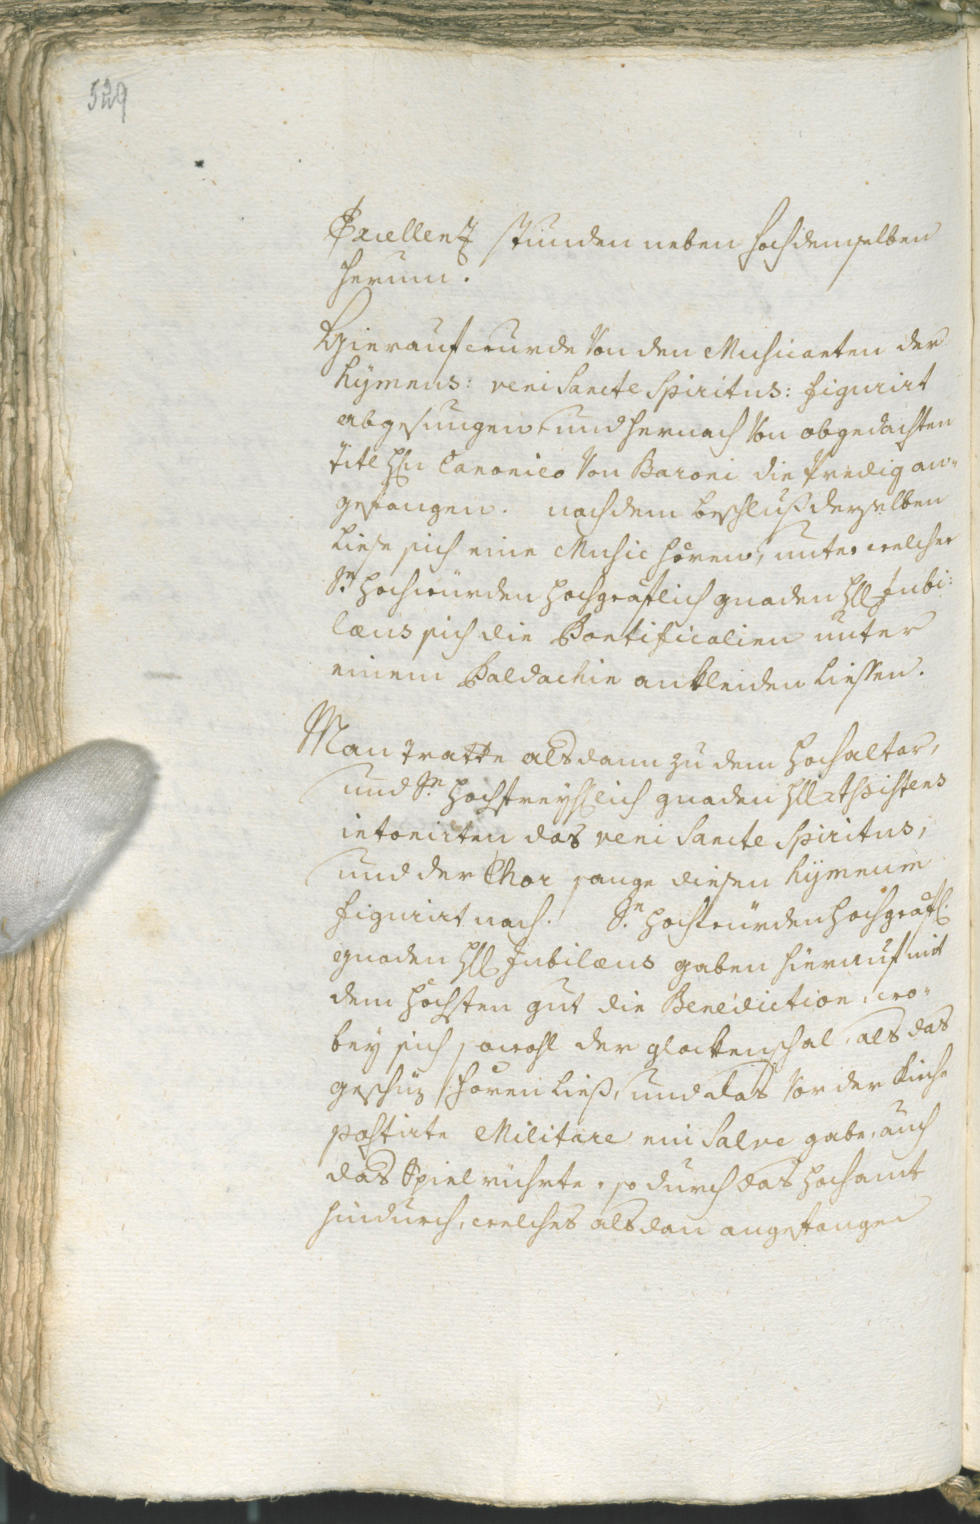 529
Excellenz stunden neben hochdemselben
herum.
Hierauf wurde von den Musicanten der
hÿmnus: veni Sancte Spiritus: figurirt
abgesungen, und hernach von obgedachten
titl Hrn Canonico von Baroni die Predig an-
gefangen. nach dem beschluß derselben
liese sich eine Music hören, unter welcher
Sr. hochwürden hochgräflich gnaden Hl. Jubi:
læus sich die Pontificalien unter
einem Baldachin ankleiden liessen.
Man tratte alsdann zu dem hochaltar,
und Sr. hochfreÿhlich gnaden Hl. Assistens
intonirten das veni Sancte Spiritus,
und der Chor sange diesen hÿmnum
figurirt nach. Sr. hochwürden hochgräfl.
gnaden Hl. Jubilæus gaben hierauf mit
dem höchsten gut die Benediction, wo-
beÿ sich sowohl der glockenschal, als das
geschüz hören ließ, und das vor der kirche
postirte Militare ein Salve gabe, auch
das Spiel rührte, so durch das hochamt
hindurch, welches alsdan angefangen